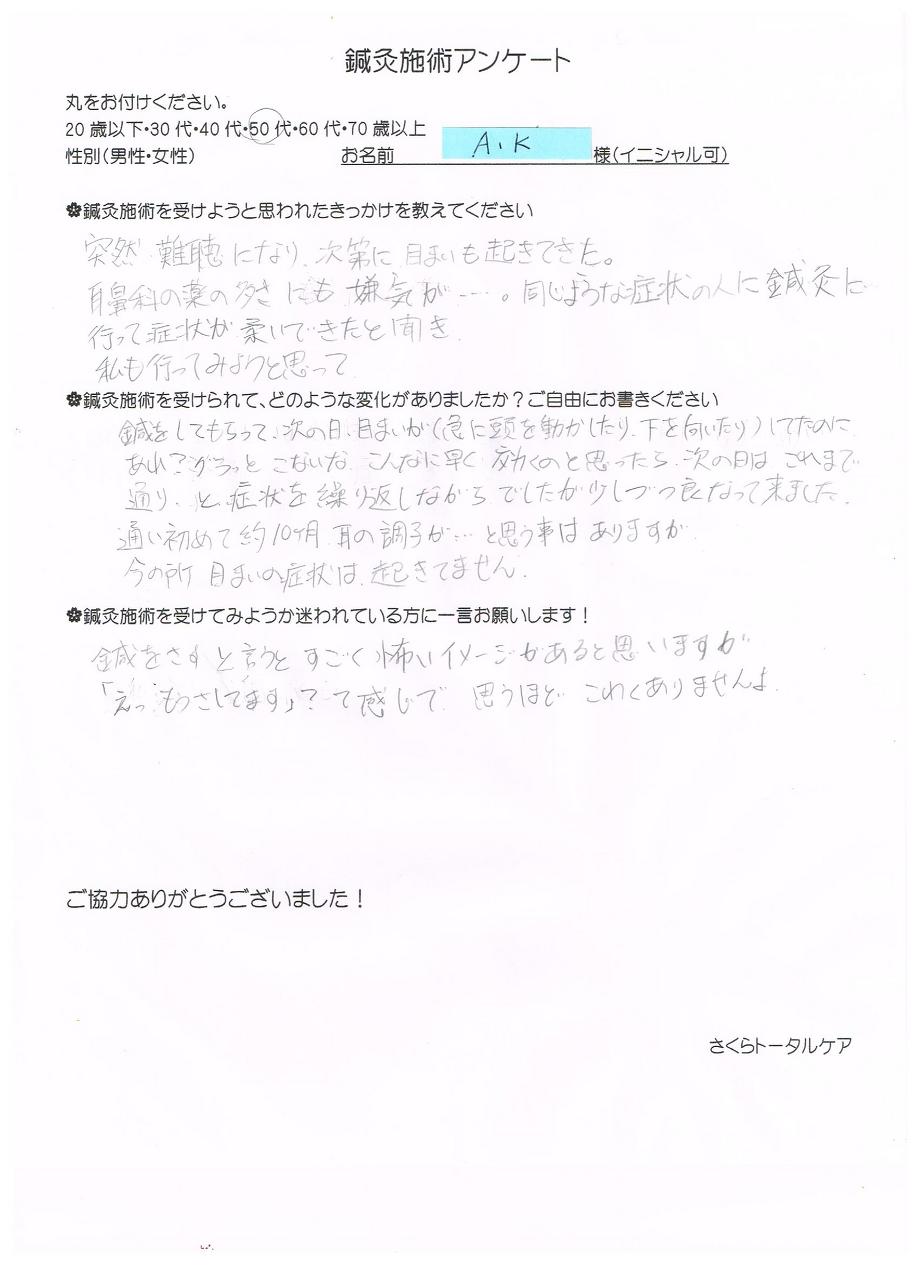 鍼灸施術アンケート
丸をお付けください。
20歳以下・30代・40代・50代・60代・70歳以上
性別(男性・女性) お名前 A.K 様(イニシャル可)
✿鍼灸施術を受けようと思われたきっかけを教えてください
突然 難聴になり、次第に目まいも起きてきた。
耳鼻科の薬の多さにも嫌気が……。同じような症状の人に鍼灸に
行って症状が柔いできたと聞き
私も行ってみようと思って
✿鍼灸施術を受けられて、どのような変化がありましたか?ご自由にお書きください
鍼をしてもらって、次の日、目まいが(急に頭を動かしたり、下を向いたり)してたのに
あれ?グラっと こないな、こんなに早く 効くのと思ったら、次の日は これまで
通り、と、症状を繰り返しながら でしたが少しづつ良なって来ました。
通い初めて約10ヶ月 耳の調子が…と思う事は ありますが
今の所 目まいの症状は 起きてません。
✿鍼灸施術を受けてみようか迷われている方に一言お願いします!
鍼をさす と言うと すごく 怖いイメージがあると思いますが
「えっ もうさしてます」? て感じで 思うほど こわくありませんよ
ご協力ありがとうございました!
さくらトータルケア